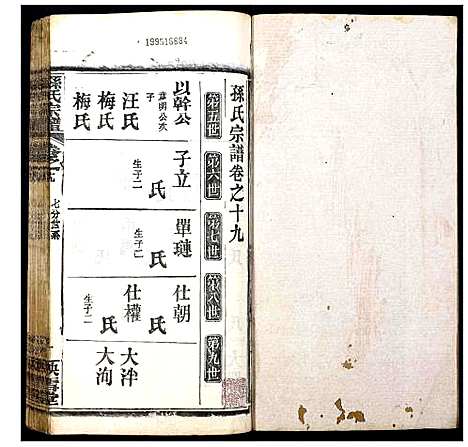 199516884
孫氏宗譜卷之十九
第五世
第六世
第七世
第八世
第九世
以幹公
子
汪氏
梅氏
梅氏
子立
氏
生子二
單璉
氏
生子二
仕朝
氏
仕權
氏
生子二
大泮
大洵
孫氏宗譜
卷之十九